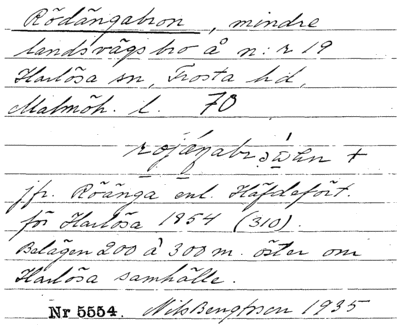 Rödängabron, mindre
landsvägsbro å n:r 19
Harlösa sn, Frosta hd,
Malmöh. l. 70
jfr. Röänga enl. Häfdafört.
för Harlösa 1854 (310).
Belägen 200 à 300 m. öster om
Harlösa samhälle.
Nr 5554. Nils Bengtsson 1935